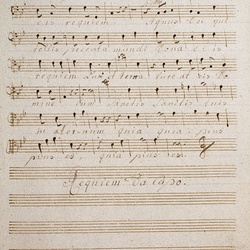 eis requiem Agnus Dei qui
tollis peccata mundi Dona eis
requiem Lux Aeterna luceat eis Do
mine cum Sanctis Sanctis tuis
in aeternum quia quia pius
pius es, quia pius es.
Requiem Da Capo.